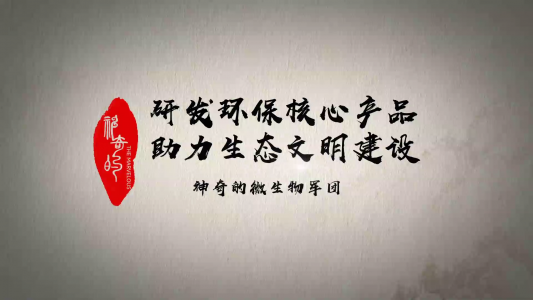 研发环保核心产品
助力生态文明建设
神奇的微生物军团
神奇的
THE MARVELOUS